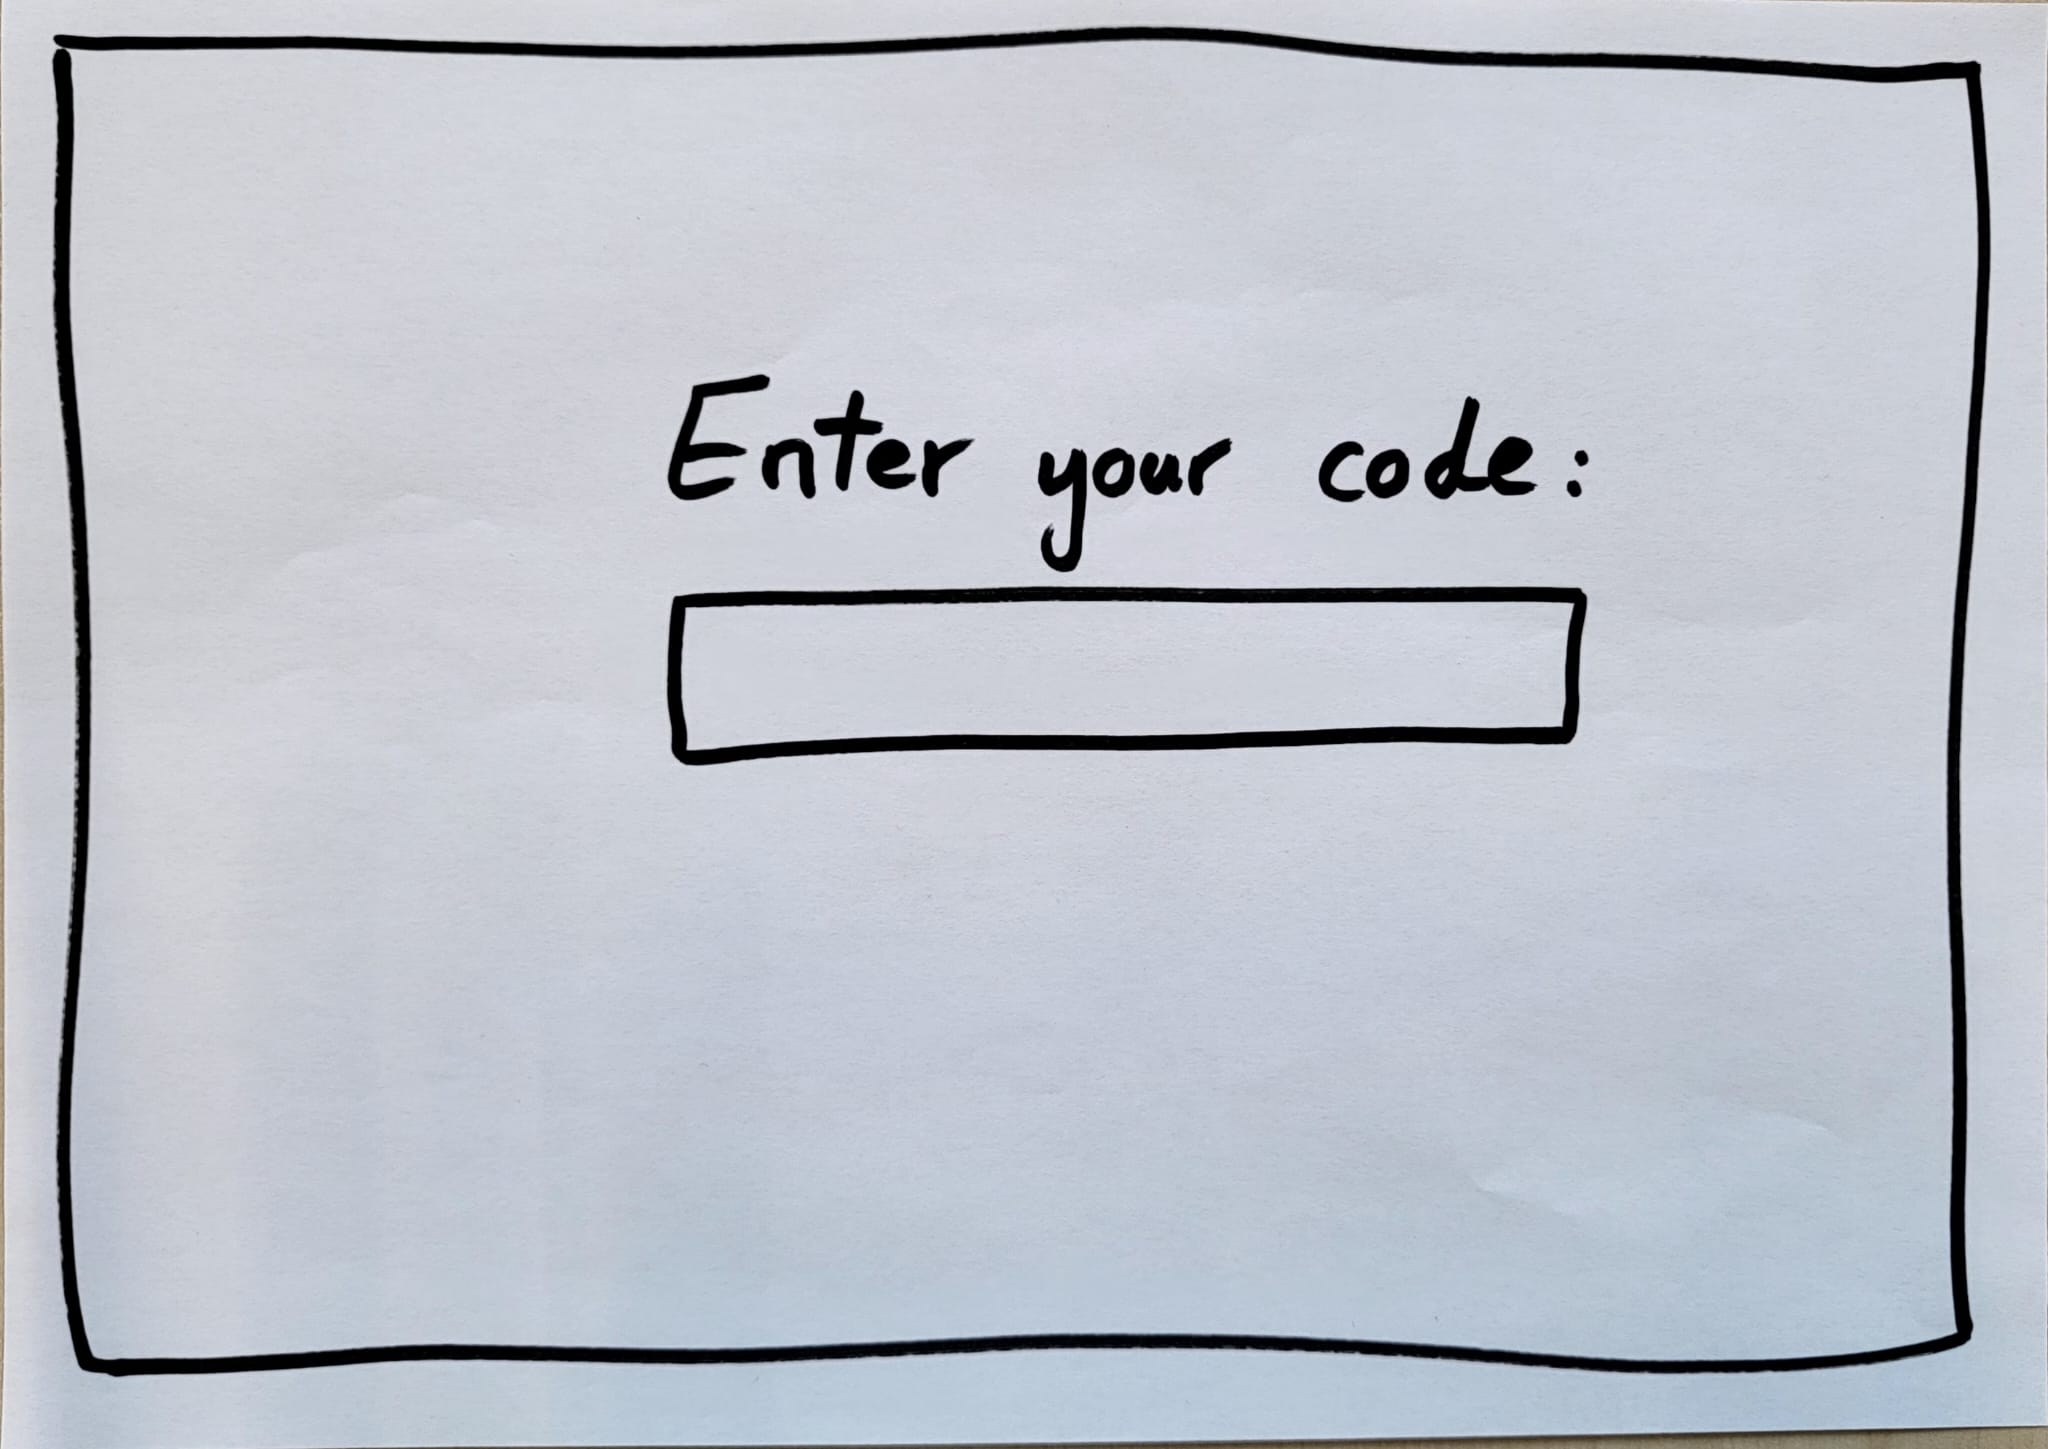 Enter your code: